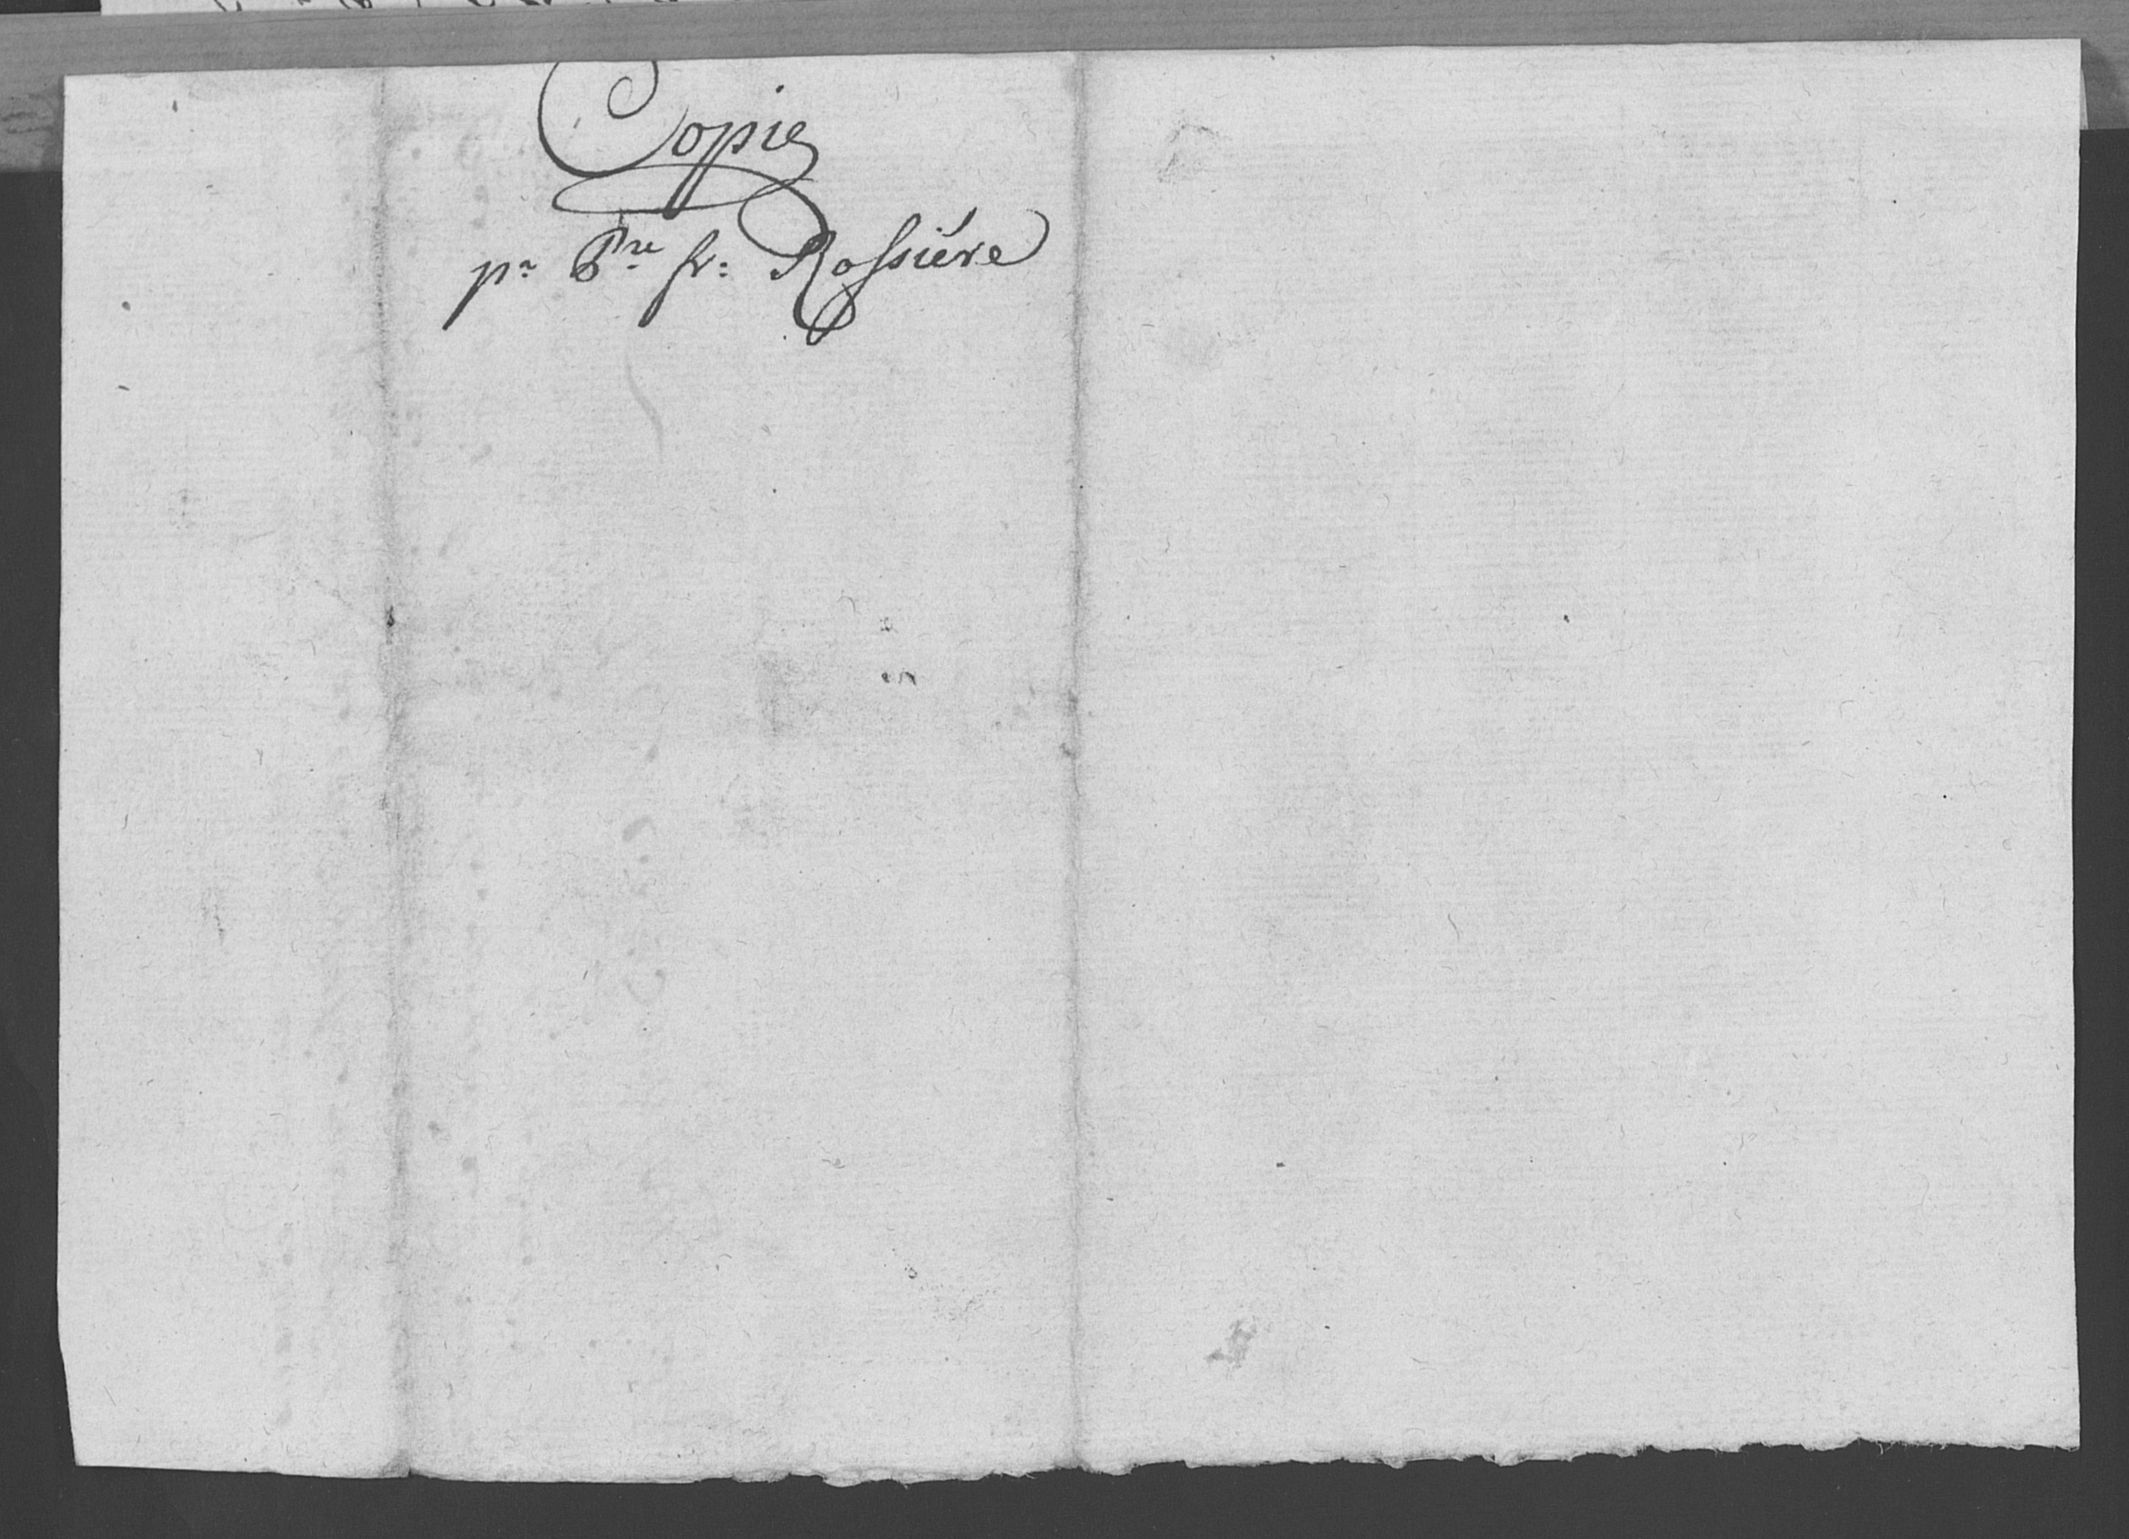 Copie
pr Pre fr: Rossiére